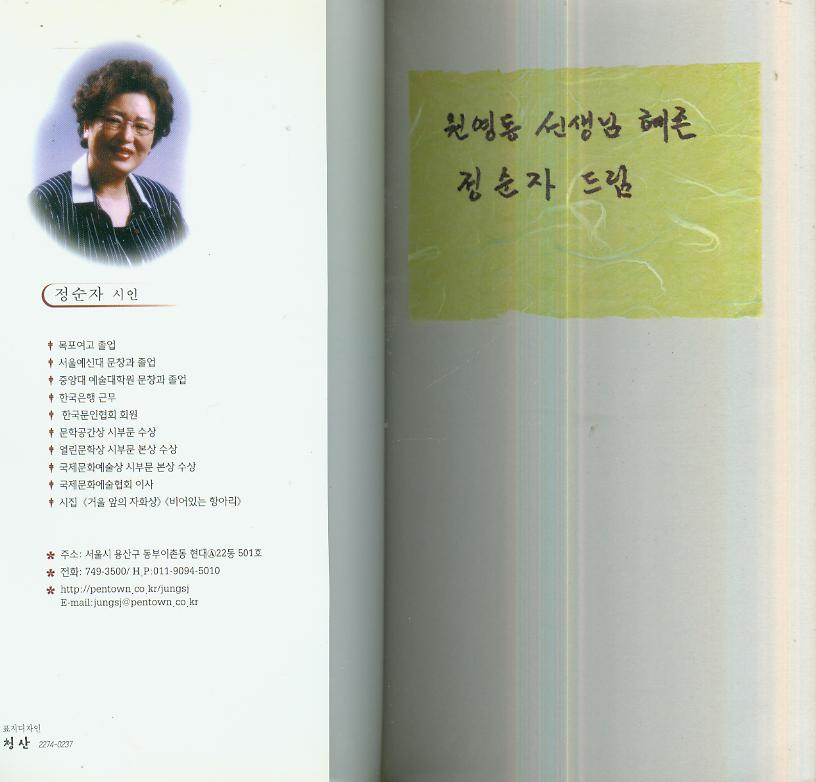 정순자 시인
목포여고 졸업
서울예신대 문창과 졸업
중앙대 예술대학원 문창과 졸업
한국은행 근무
한국문인협회 회원
문학공간상 시부문 수상
열린문학상 시부문 본상 수상
국제문화예술상 시부문 본상 수상
국제문화예술협회 이사
시집 《거울 앞의 자화상》《비어있는 항아리》
* 주소: 서울시 용산구 동부이촌동 현대Ⓐ22동 501호
* 전화: 749-3500/ H.P:011-9094-5010
* http://pentown.co.kr/jungsj
E-mail:jungsj@pentown.co.kr
표지디자인
청산 2274-0237
원영동 선생님 혜존
정순자 드림